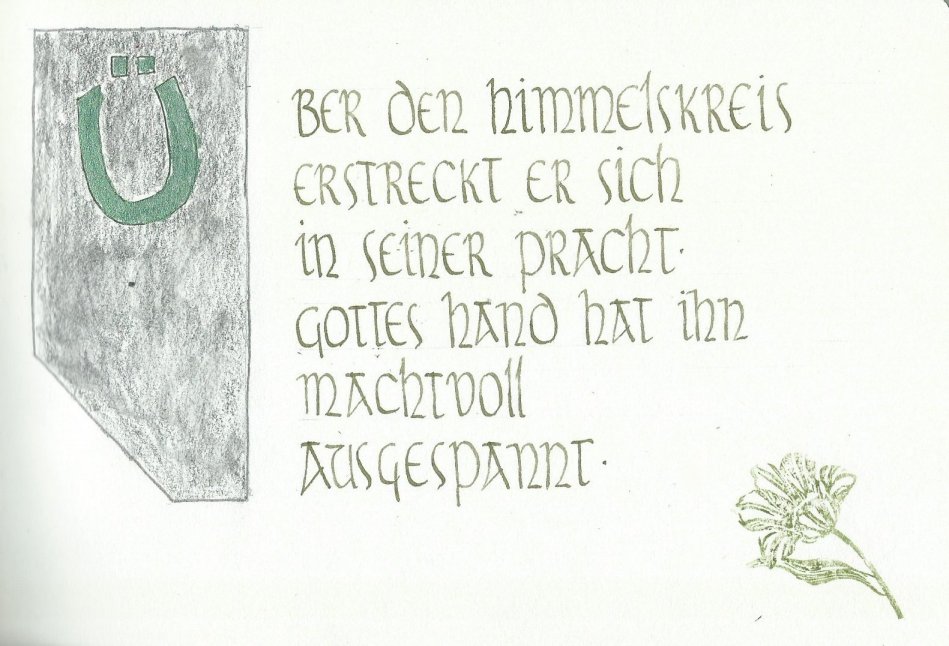 ÜBER DEN HIMMELSKREIS
ERSTRECKT ER SICH
IN SEINER PRACHT.
GOTTES HAND HAT IHN
MACHTVOLL
AUSGESPANNT.